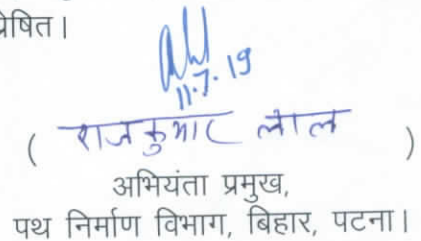 प्रेषित।
11.7.19
( राजकुमार लाल )
अभियंता प्रमुख,
पथ निर्माण विभाग, बिहार, पटना।